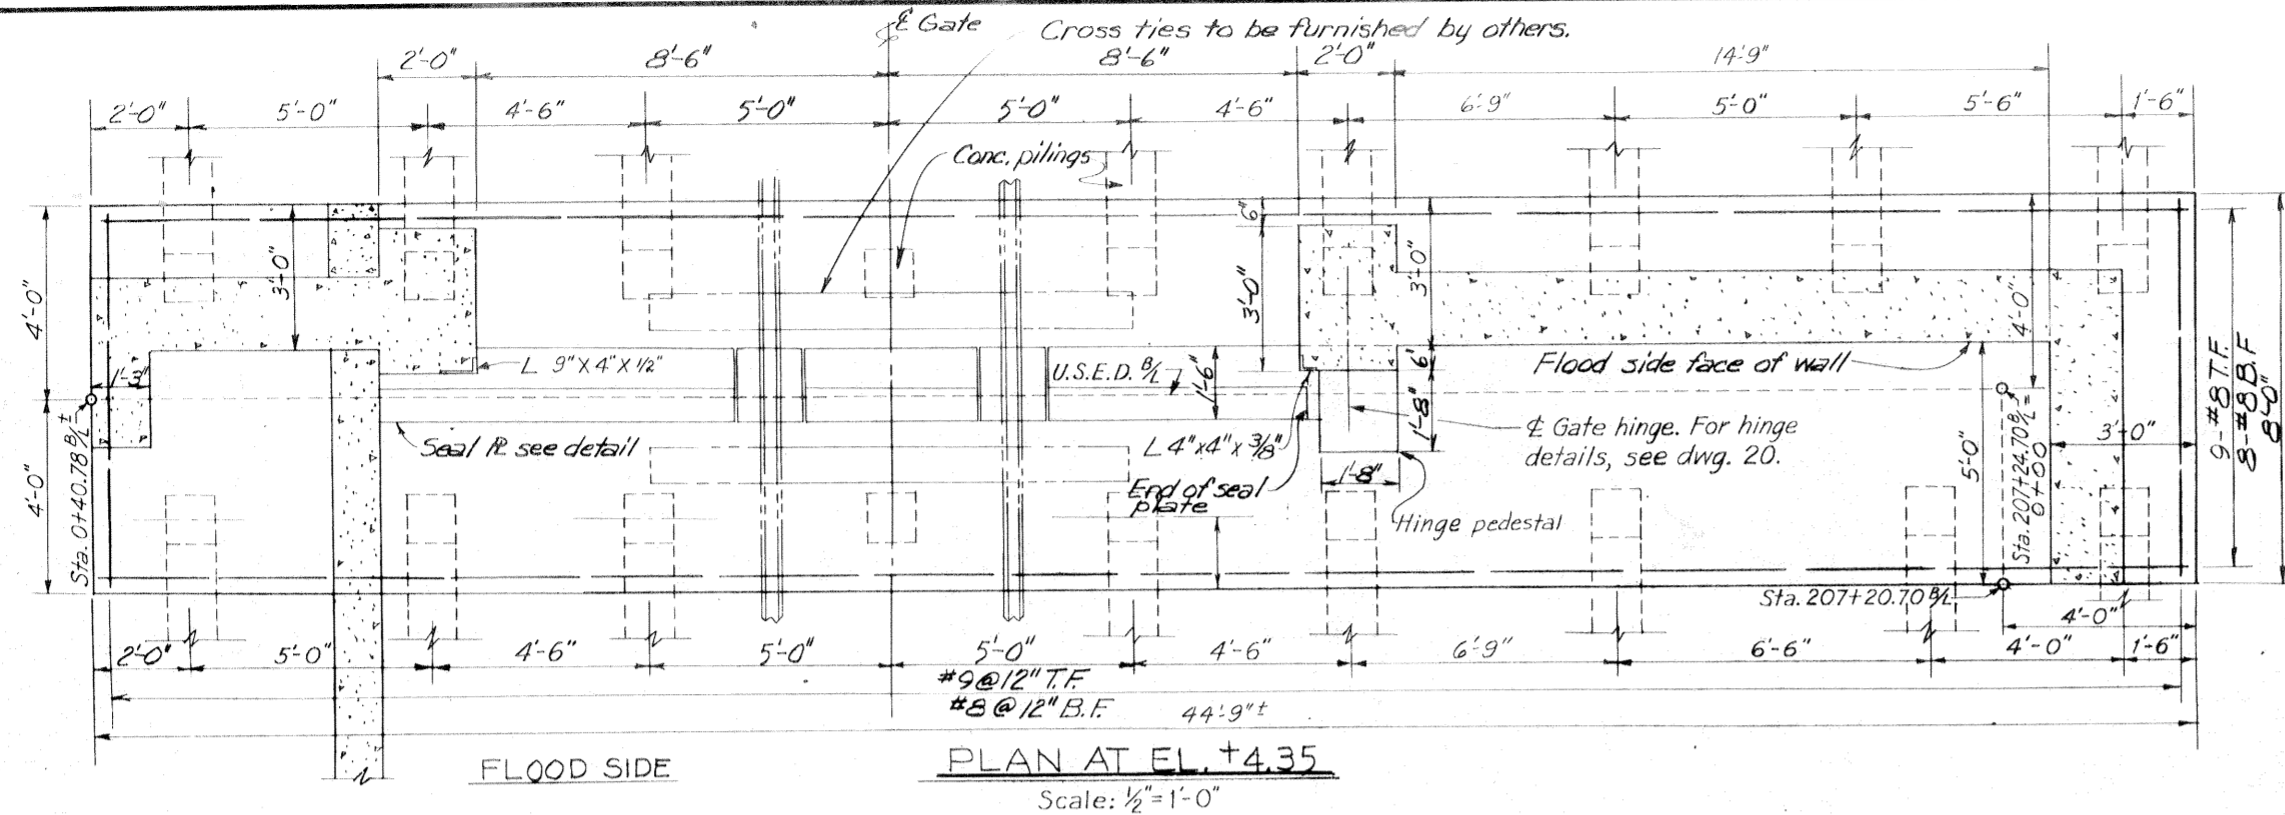 ℄ Gate
Cross ties to be furnished by others.
2'-0" 8'-6" 8'-6" 2'-0" 14'-9"
2'-0" 5'-0" 4'-6" 5'-0" 5'-0" 4'-6" 6'-9" 5'-0" 5'-6" 1'-6"
Conc. pilings
4'-0"
3'-0"
6"
3'-0"
3'-0"
4'-0"
L 9"X4"X½"
U.S.E.D. B/L
1'-6"
6"
Flood side face of wall
9-#8 T.F.
8-#8 B.F.
8'-0"
1'-3"
Sta. 0+40.78 B/L ±
4'-0"
Seal PL see detail
L 4"x4"x3/8"
1'-8"
℄ Gate hinge. For hinge
details, see dwg. 20.
5'-0"
Sta. 207+24.70 B/L =
0+00
3'-0"
End of seal
plate
1'-8"
Hinge pedestal
Sta. 207+20.70 B/L
4'-0"
2'-0" 5'-0" 4'-6" 5'-0" 5'-0" 4'-6" 6'-9" 6'-6" 4'-0" 1'-6"
#9@12" T.F.
#8@12" B.F.
44'-9"±
FLOOD SIDE
PLAN AT EL. +4.35
Scale: ½"=1'-0"